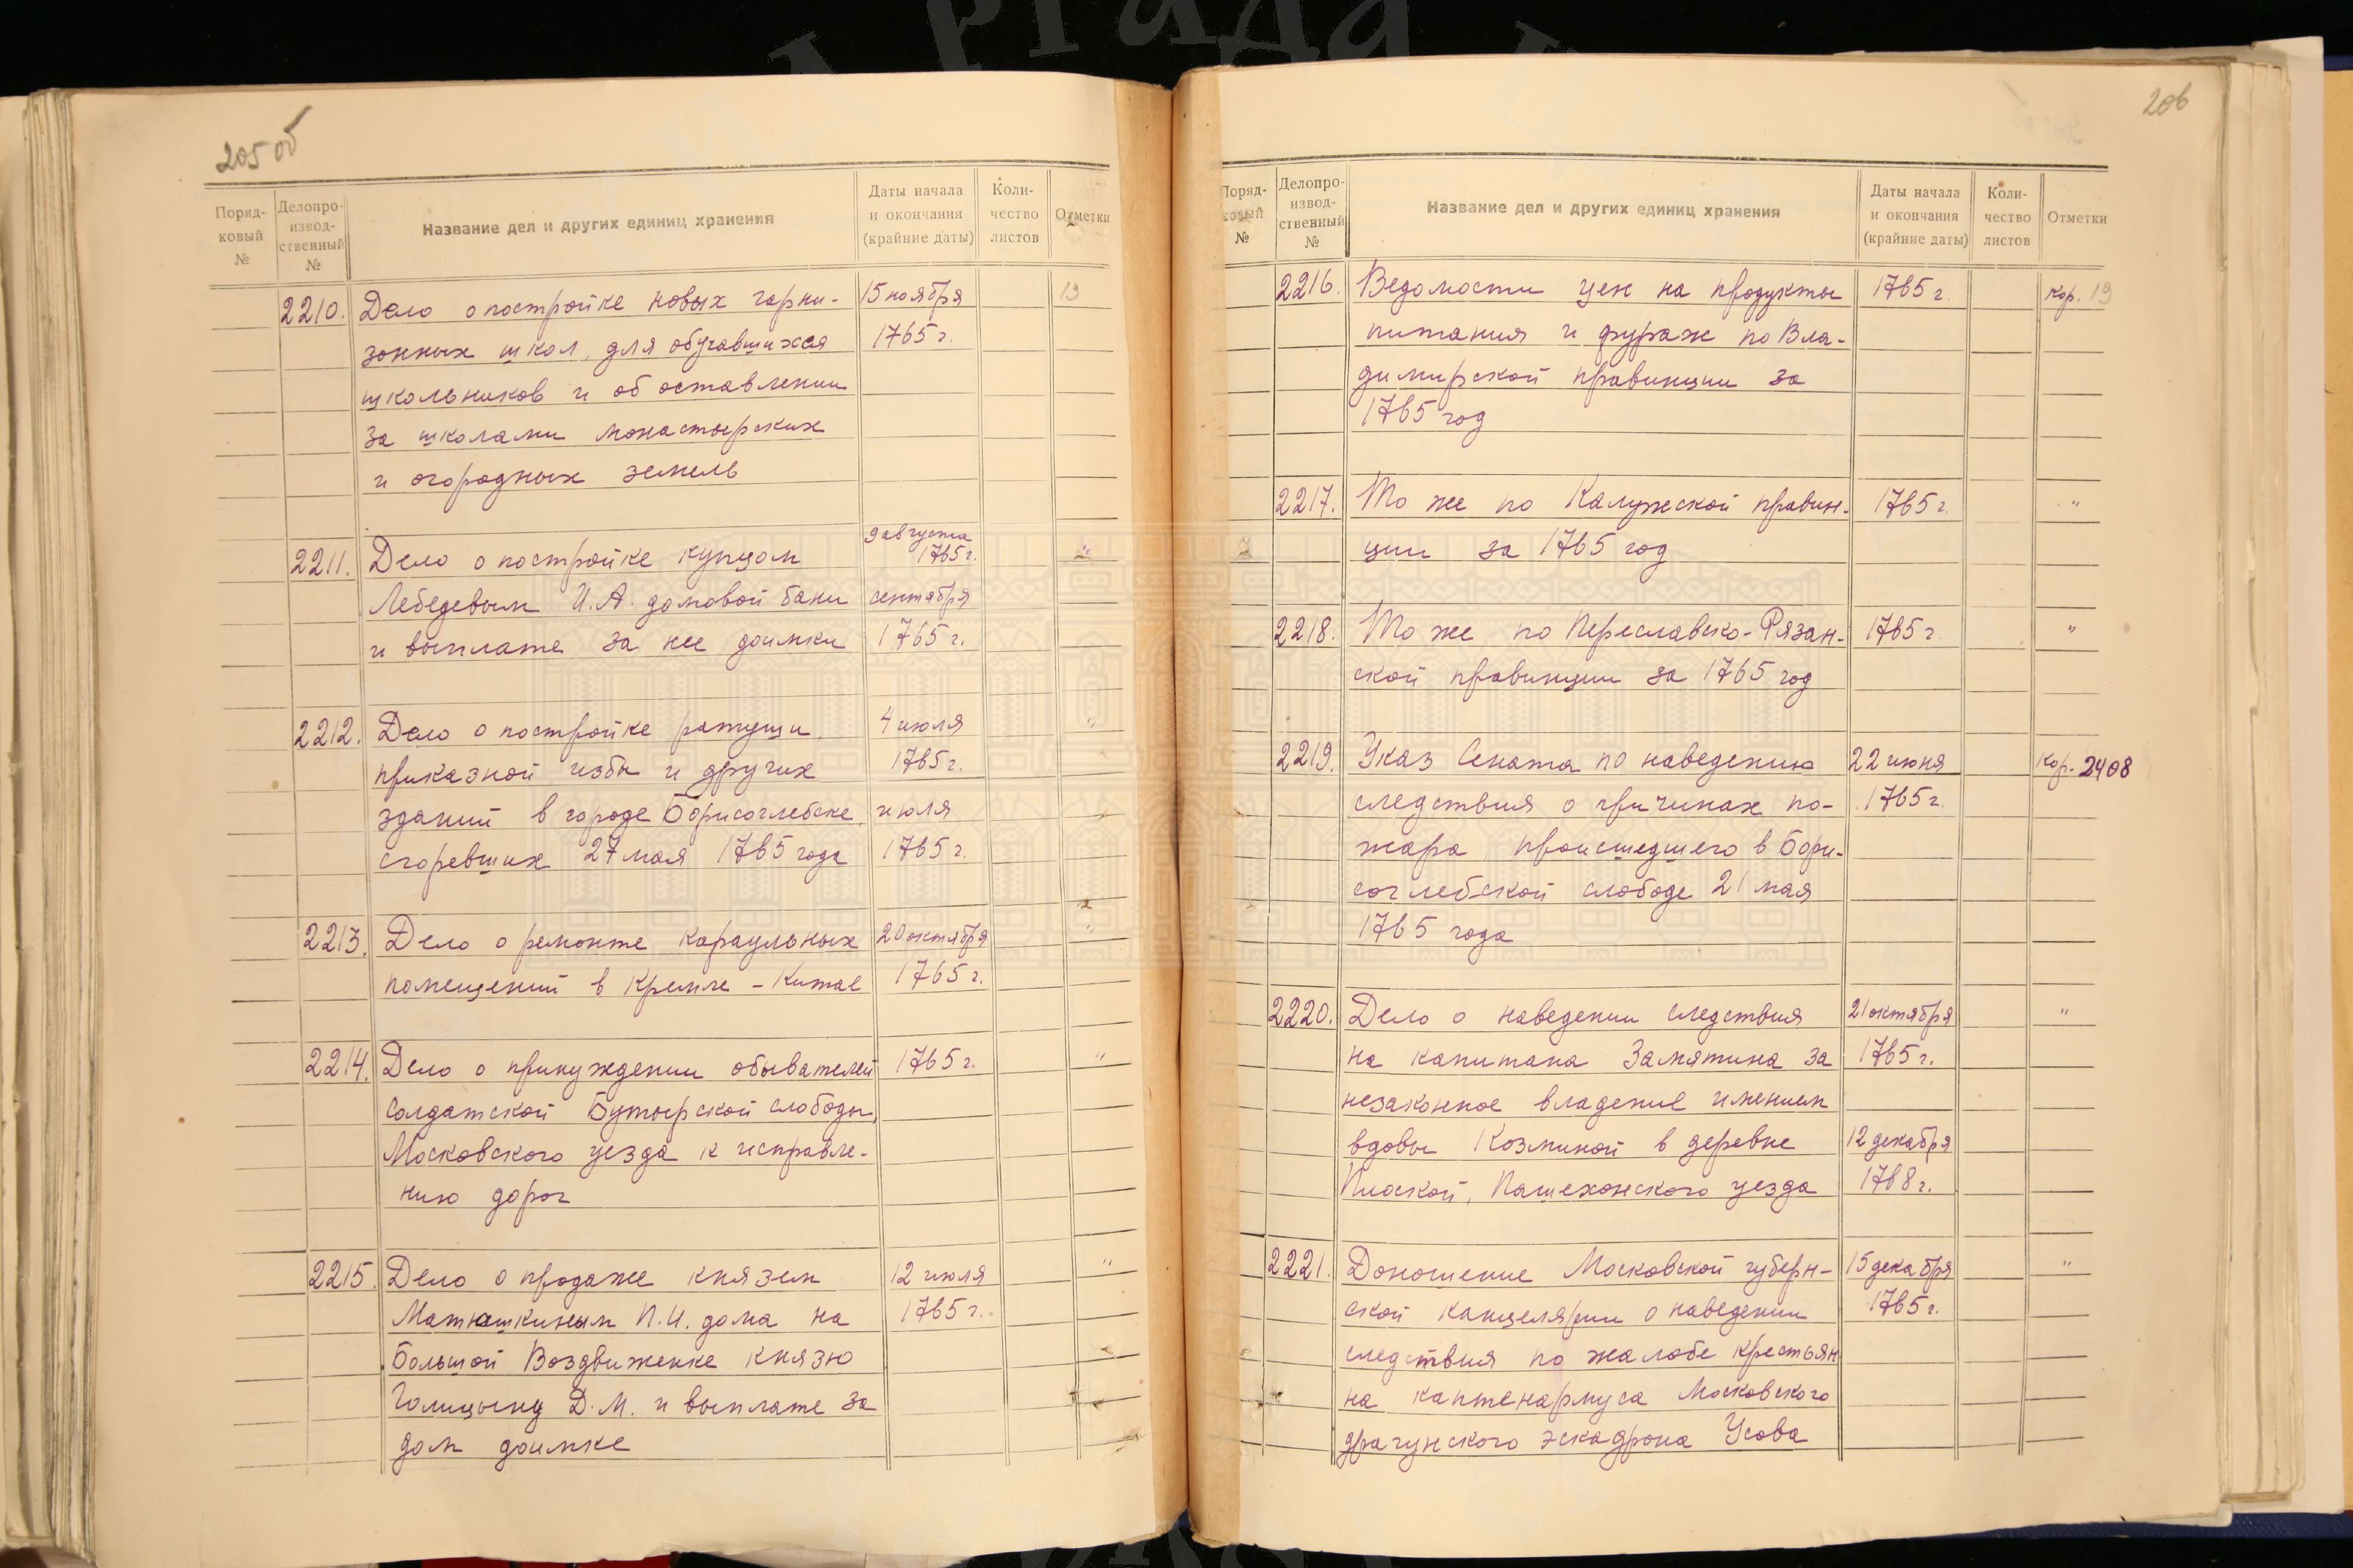 205 об
Поряд-
ковый
№
Делопро-
извод-
ственный
№
Название дел и других единиц хранения
Даты начала
и окончания
(крайние даты)
Коли-
чество
листов
Отметки
2210. Дело о постройке новых гарни- 15 ноября 19
зонных школ, для обучавшихся 1765 г.
школьников и об оставлении
за школами монастырских
и огородных земель
9 августа
2211. Дело о постройке купцом 1765 г. "
Лебедевым И.А. домовой бани сентября
и выплате за нее доимки 1765 г.
2212. Дело о постройке ратуши, 4 июля "
приказной избы и других 1765 г.
зданий в городе Борисоглебске, июля
сгоревших 27 мая 1765 года 1765 г.
2213. Дело о ремонте караульных 20 октября "
помещений в Кремле - Китае 1765 г.
2214. Дело о принуждении обывателей 1765 г. "
солдатской Бутырской слободы,
Московского уезда к исправле-
нию дорог
2215. Дело о продаже князем 12 июля "
Матюшкиным П.И. дома на 1765 г.
Большой Воздвиженке князю
Голицыну Д.М. и выплате за
дом доимке
206
Поряд-
ковый
№
Делопро-
извод-
ственный
№
Название дел и других единиц хранения
Даты начала
и окончания
(крайние даты)
Коли-
чество
листов
Отметки
2216. Ведомости цен на продукты 1765 г. кор. 19
питания и фураж по Вла-
димирской провинции за
1765 год
2217. То же по Калужской провин- 1765 г. "
ции за 1765 год
2218. То же по Переславско-Рязан- 1765 г. "
ской провинции за 1765 год
2219. Указ Сената по наведению 22 июня кор. 2408
следствия о причинах по- 1765 г.
жара, происшедшего в Бори-
соглебской слободе 21 мая
1765 года
2220. Дело о наведении следствия 21 октября "
на капитана Замятина за 1765 г.
незаконное владение имением
вдовы Козминой в деревне 12 декабря
Плоской, Пошехонского уезда 1768 г.
2221. Доношение Московской губерн- 15 декабря "
ской канцелярии о наведении 1765 г.
следствия по жалобе крестьян
на каптенармуса Московского
драгунского эскадрона Усова